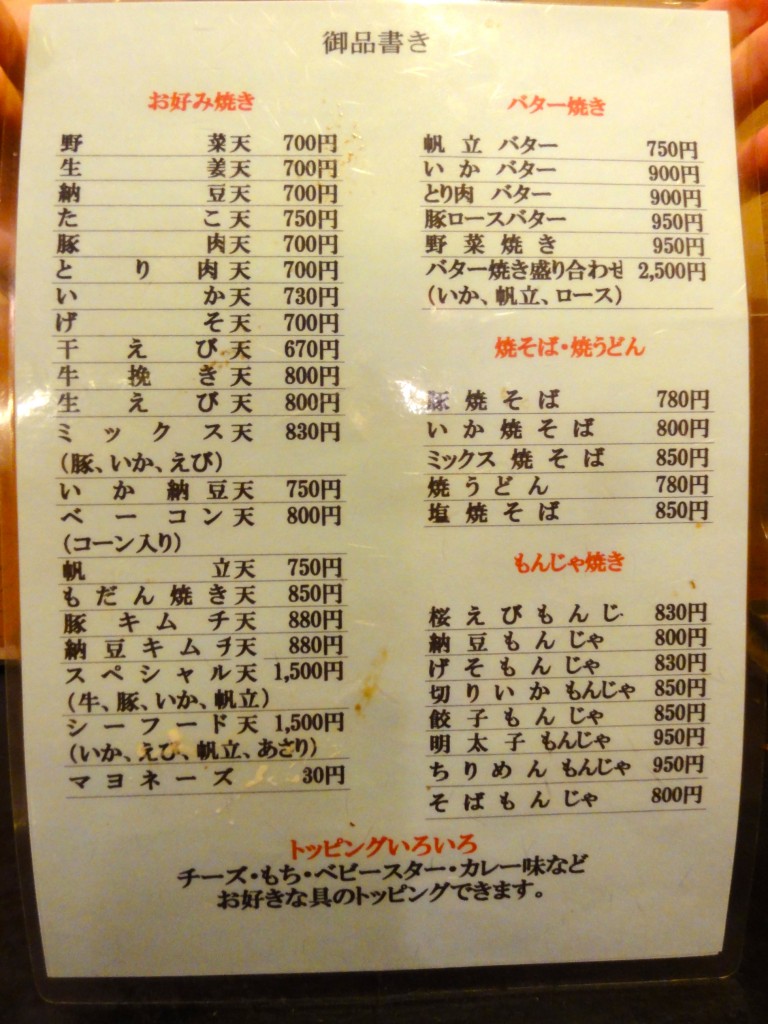 御品書き
お好み焼き
野菜天 700円
生姜天 700円
納豆天 700円
たこ天 750円
豚肉天 700円
とり肉天 700円
いか天 730円
げそ天 700円
干えび天 670円
牛挽き天 800円
生えび天 800円
ミックス天 830円
(豚、いか、えび)
いか納豆天 750円
ベーコン天 800円
(コーン入り)
帆立天 750円
もだん焼き天 850円
豚キムチ天 880円
納豆キムチ天 880円
スペシャル天 1,500円
(牛、豚、いか、帆立)
シーフード天 1,500円
(いか、えび、帆立、あさり)
マヨネーズ 30円
バター焼き
帆立バター 750円
いかバター 900円
とり肉バター 900円
豚ロースバター 950円
野菜焼き 950円
バター焼き盛り合わせ 2,500円
(いか、帆立、ロース)
焼そば・焼うどん
豚焼そば 780円
いか焼そば 800円
ミックス焼そば 850円
焼うどん 780円
塩焼そば 850円
もんじゃ焼き
桜えびもんじ 830円
納豆もんじゃ 800円
げそもんじゃ 830円
切りいかもんじゃ 850円
餃子もんじゃ 850円
明太子もんじゃ 950円
ちりめんもんじゃ 950円
そばもんじゃ 800円
トッピングいろいろ
チーズ・もち・ベビースター・カレー味など
お好きな具のトッピングできます。